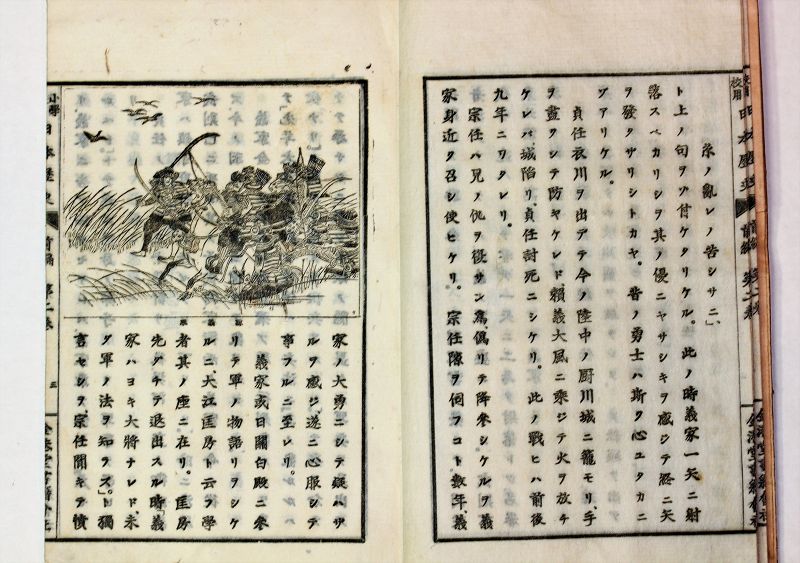 糸ノ亂レノ苦シサニ、
ト上ノ句ヲゾ付ケタリケル。此ノ時義家一矢ニ射
落スベカリシヲ其ノ優ニヤサシキヲ感ジテ終ニ矢
ヲ發タザリシトカヤ。昔ノ勇士ハ斯ク心ユタカニ
ゾアリケル。
貞任衣川ヲ出デテ今ノ陸中ノ厨川城ニ籠モリ、手
ヲ盡クシテ防ヤケレド、賴義大風ニ乘ジテ火ヲ放チ
ケレバ、城陷リ、貞任討死ニシケリ。此ノ戰ヒハ前後
九年ニワタレリ。
宗任ハ兄ノ仇ヲ復サン爲、僞リテ降參シケルヲ義
家身近ク召シ使ヒケリ。宗任隙ヲ伺フコト、數年、義
家ノ大勇ニシテ疑ハザ
ルヲ感ジ、遂ニ心服シテ
事フルニ至レリ。
義家或日關白殿ニ參
リテ軍ノ物語リヲシケ
ルニ、大江匡房ト云フ學
者其ノ座ニ在リ。匡房
先ダチテ退出スル時「義
家ハヨキ大將ナレド、未
ダ軍ノ法ヲ知ラズ」ト獨
言セシヲ、宗任聞キテ憤
校用 日本歷史 前編 第二卷
小學 日本歷史 前編 第二卷 三